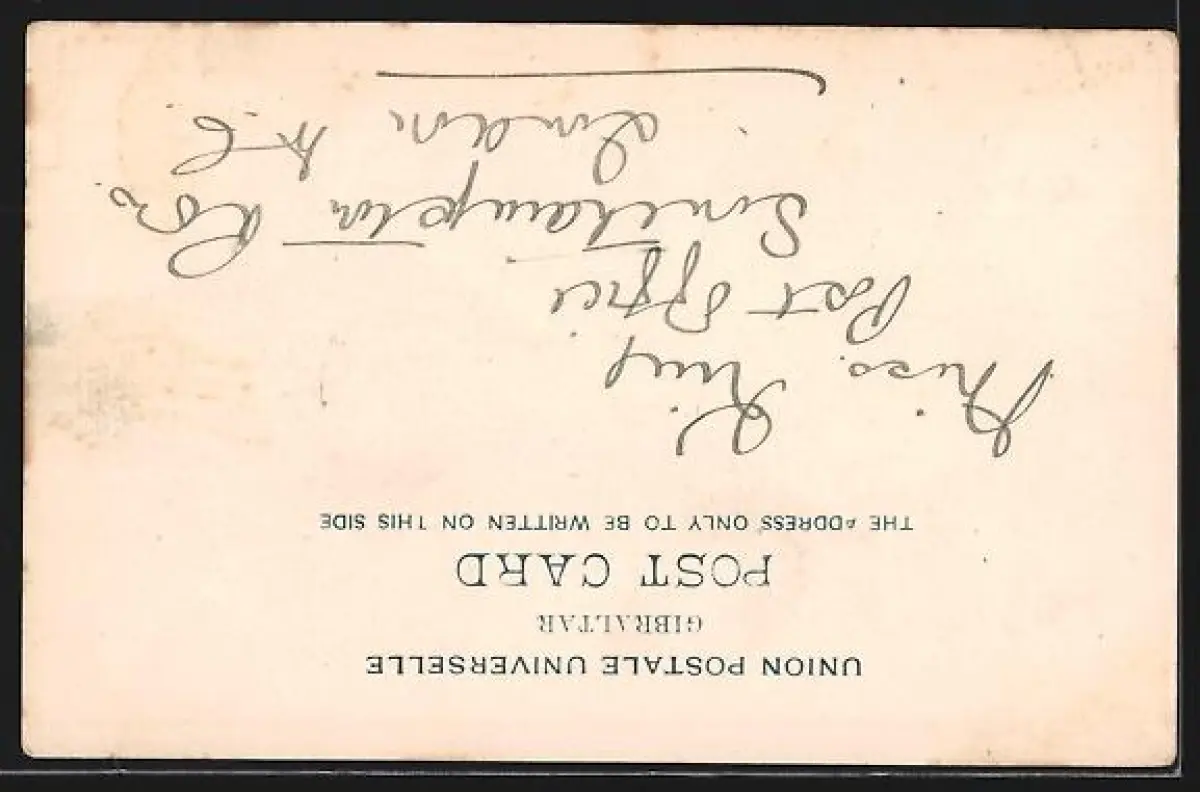 UNION POSTALE UNIVERSELLE
GIBRALTAR
POST CARD
THE ADDRESS ONLY TO BE WRITTEN ON THIS SIDE
Miss King
Post Office
Southampton Row
London W.C